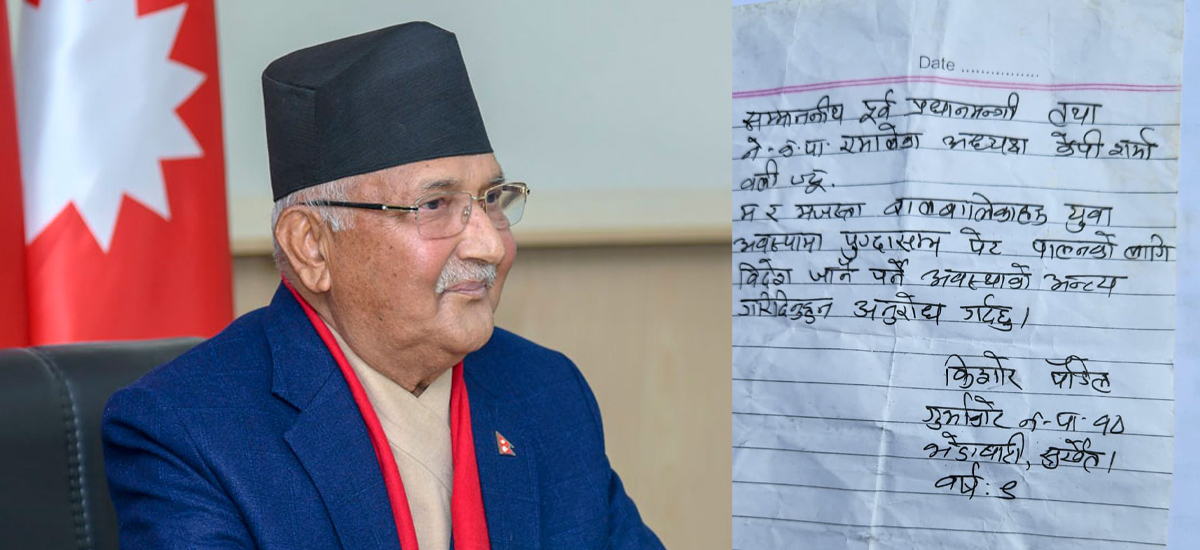 Date ................
सम्माननीय पूर्व प्रधानमन्त्री तथा
ने.क.पा. एमालेका अध्यक्ष केपी शर्मा
वली ज्यू.
म र मजस्ता बालबालिकाहरु युवा
अवस्थामा पुग्दासम्म पेट पालनको लागि
विदेश जानै पर्ने अवस्थाको अन्त्य
गरिदिनुहुन अनुरोध गर्दछु।
किशोर पौडेल
गुर्भाकोट न.पा. १०
भेडाघारी, सुर्खेत।
वर्ष: ९